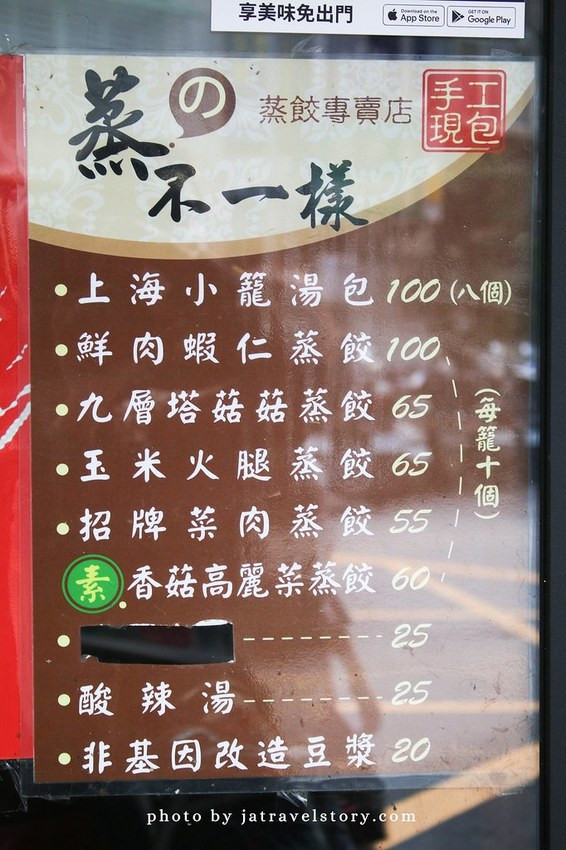 享美味免出門
Download on the App Store
GET IT ON Google Play
蒸の不一樣
蒸餃專賣店
手工現包
上海小籠湯包 100 (八個)
鮮肉蝦仁蒸餃 100
九層塔菇菇蒸餃 65
玉米火腿蒸餃 65
招牌菜肉蒸餃 55
素 香菇高麗菜蒸餃 60
(每籠十個)
25
酸辣湯 25
非基因改造豆漿 20
photo by jatravelstory.com